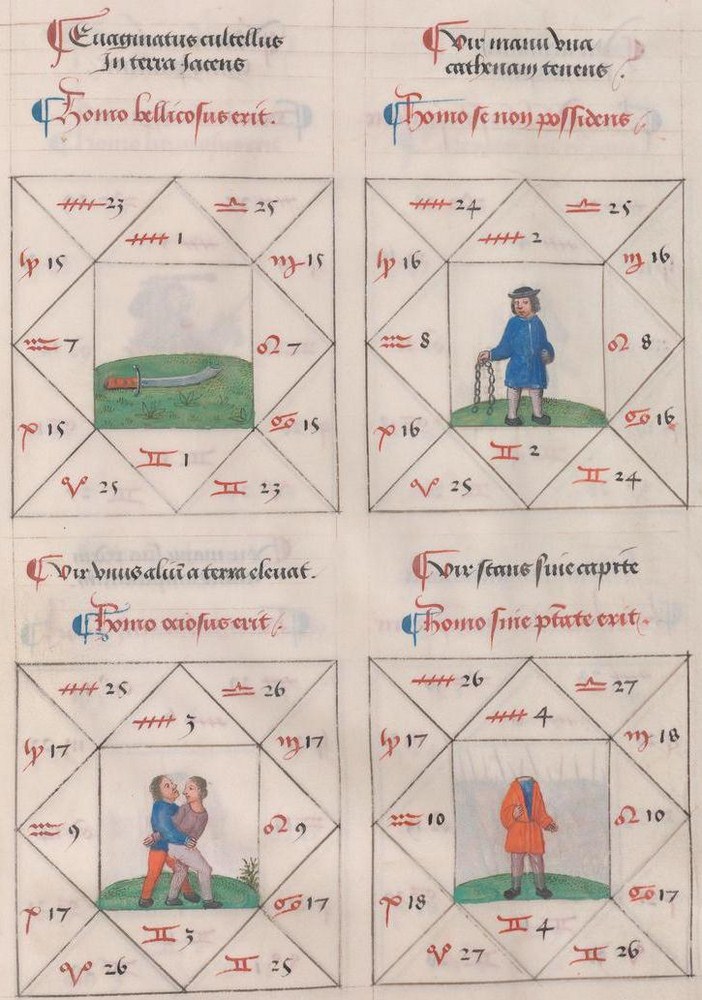 Euaginatus cultellus
In terra Jacens
Homo bellicosus erit.
♐ 23
♎ 25
♐ 1
♑ 15
♏ 15
♒ 7
♌ 7
♓ 15
♋ 15
♊ 1
♈ 25
♊ 23
Vir manu vna
cathenam tenens
Homo se non possidens
♐ 24
♎ 25
♐ 2
♑ 16
♏ 16
♒ 8
♌ 8
♓ 16
♋ 16
♊ 2
♈ 25
♊ 24
Vir vnus aliū a terra eleuat.
Homo ociosus erit
♐ 25
♎ 26
♐ 3
♑ 17
♏ 17
♒ 9
♌ 9
♓ 17
♋ 17
♊ 3
♈ 26
♊ 25
Vir stans sine capite
Homo sine ptāte erit
♐ 26
♎ 27
♐ 4
♑ 17
♏ 18
♒ 10
♌ 10
♓ 18
♋ 17
♊ 4
♈ 27
♊ 26